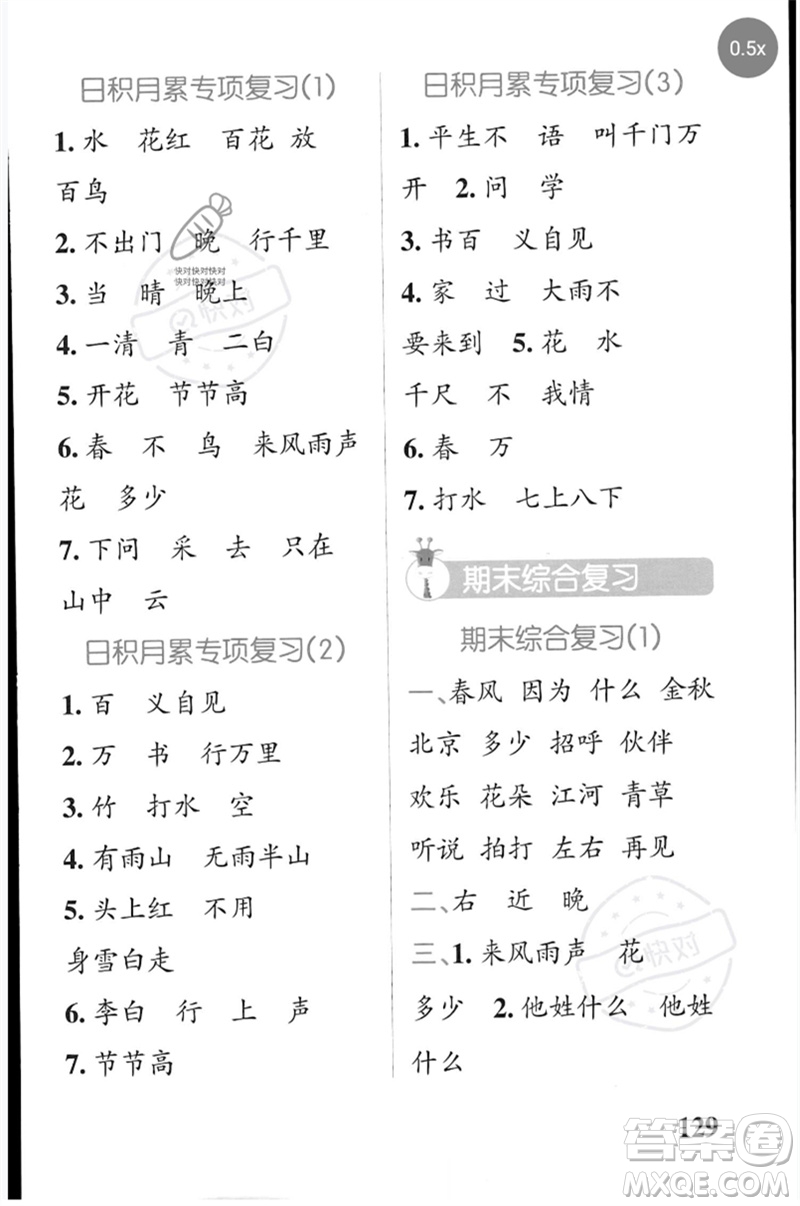 0.5x
日积月累专项复习(1)
1. 水 花红 百花 放
百鸟
2. 不出门 晚 行千里
3. 当 晴 晚上
4. 一清 青 二白
5. 开花 节节高
6. 春 不 鸟 来风雨声
花 多少
7. 下问 采 去 只在
山中 云
日积月累专项复习(2)
1. 百 义自见
2. 万 书 行万里
3. 竹 打水 空
4. 有雨山 无雨半山
5. 头上红 不用
身雪白走
6. 李白 行 上 声
7. 节节高
日积月累专项复习(3)
1. 平生不 语 叫千门万
开 2. 问 学
3. 书百 义自见
4. 家 过 大雨不
要来到 5. 花 水
千尺 不 我情
6. 春 万
7. 打水 七上八下
期末综合复习
期末综合复习(1)
一、春风 因为 什么 金秋
北京 多少 招呼 伙伴
欢乐 花朵 江河 青草
听说 拍打 左右 再见
二、右 近 晚
三、1. 来风雨声 花
多少 2. 他姓什么 他姓
什么
129
快对快对快对
快对快对快对
快对
快对
答案圈
MXQE.COM